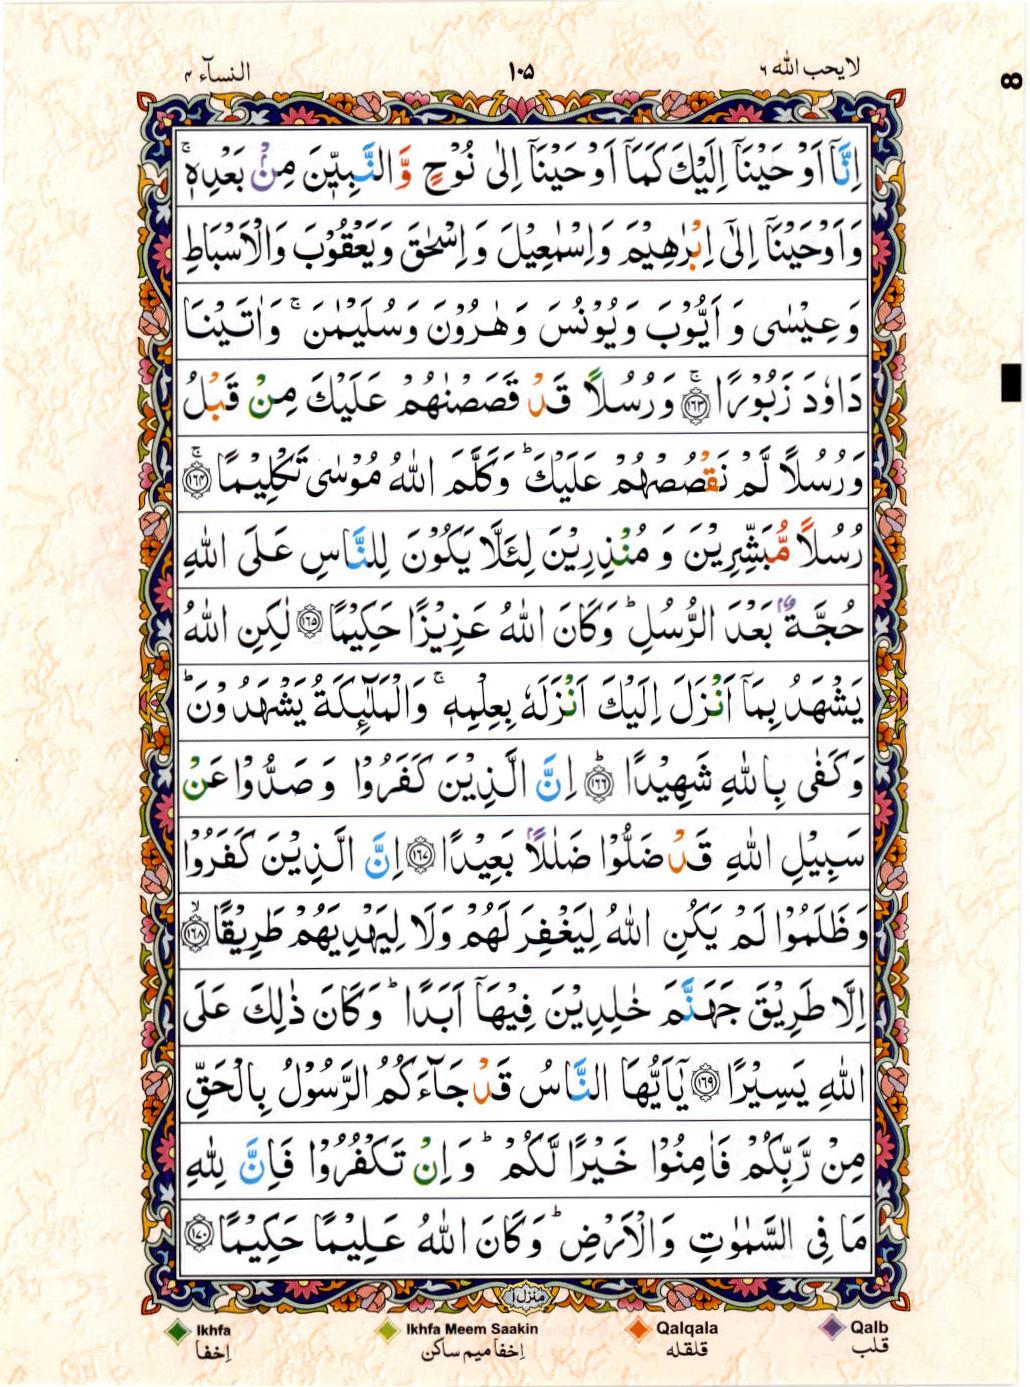 لا يحب الله ٦
١٠٥
النسآء ٤
8
اِنَّاۤ اَوْحَيْنَاۤ اِلَيْكَ كَمَاۤ اَوْحَيْنَاۤ اِلٰى نُوْحٍ وَّالنَّبِيّٖنَ مِنْۢ بَعْدِهٖ ۚ
وَاَوْحَيْنَاۤ اِلٰٓى اِبْرٰهِيْمَ وَاِسْمٰعِيْلَ وَاِسْحٰقَ وَيَعْقُوْبَ وَالْاَسْبَاطِ
وَعِيْسٰى وَاَيُّوْبَ وَيُوْنُسَ وَهٰرُوْنَ وَسُلَيْمٰنَ ۚ وَاٰتَيْنَا
دَاوٗدَ زَبُوْرًا ۚ ﴿١٦٣﴾ وَرُسُلًا قَدْ قَصَصْنٰهُمْ عَلَيْكَ مِنْ قَبْلُ
وَرُسُلًا لَّمْ نَقْصُصْهُمْ عَلَيْكَ ؕ وَكَلَّمَ اللّٰهُ مُوْسٰى تَكْلِيْمًا ۚ ﴿١٦٤﴾
رُسُلًا مُّبَشِّرِيْنَ وَمُنْذِرِيْنَ لِئَلَّا يَكُوْنَ لِلنَّاسِ عَلَى اللّٰهِ
حُجَّةٌۢ بَعْدَ الرُّسُلِ ؕ وَكَانَ اللّٰهُ عَزِيْزًا حَكِيْمًا ﴿١٦٥﴾ لٰكِنِ اللّٰهُ
يَشْهَدُ بِمَاۤ اَنْزَلَ اِلَيْكَ اَنْزَلَهٗ بِعِلْمِهٖ ۚ وَالْمَلٰٓئِكَةُ يَشْهَدُوْنَ ؕ
وَكَفٰى بِاللّٰهِ شَهِيْدًا ؕ ﴿١٦٦﴾ اِنَّ الَّذِيْنَ كَفَرُوْا وَصَدُّوْا عَنْ
سَبِيْلِ اللّٰهِ قَدْ ضَلُّوْا ضَلٰلًاۢ بَعِيْدًا ﴿١٦٧﴾ اِنَّ الَّذِيْنَ كَفَرُوْا
وَظَلَمُوْا لَمْ يَكُنِ اللّٰهُ لِيَغْفِرَ لَهُمْ وَلَا لِيَهْدِيَهُمْ طَرِيْقًا ۙ ﴿١٦٨﴾
اِلَّا طَرِيْقَ جَهَنَّمَ خٰلِدِيْنَ فِيْهَاۤ اَبَدًا ؕ وَكَانَ ذٰلِكَ عَلَى
اللّٰهِ يَسِيْرًا ﴿١٦٩﴾ يٰۤاَيُّهَا النَّاسُ قَدْ جَآءَكُمُ الرَّسُوْلُ بِالْحَقِّ
مِنْ رَّبِّكُمْ فَاٰمِنُوْا خَيْرًا لَّكُمْ ؕ وَاِنْ تَكْفُرُوْا فَاِنَّ لِلّٰهِ
مَا فِى السَّمٰوٰتِ وَالْاَرْضِ ؕ وَكَانَ اللّٰهُ عَلِيْمًا حَكِيْمًا ﴿١٧٠﴾
منزل ١
Ikhfa Ikhfa Meem Saakin Qalqala Qalb
اِخفا اِخفا میم ساکن قلقله قلب